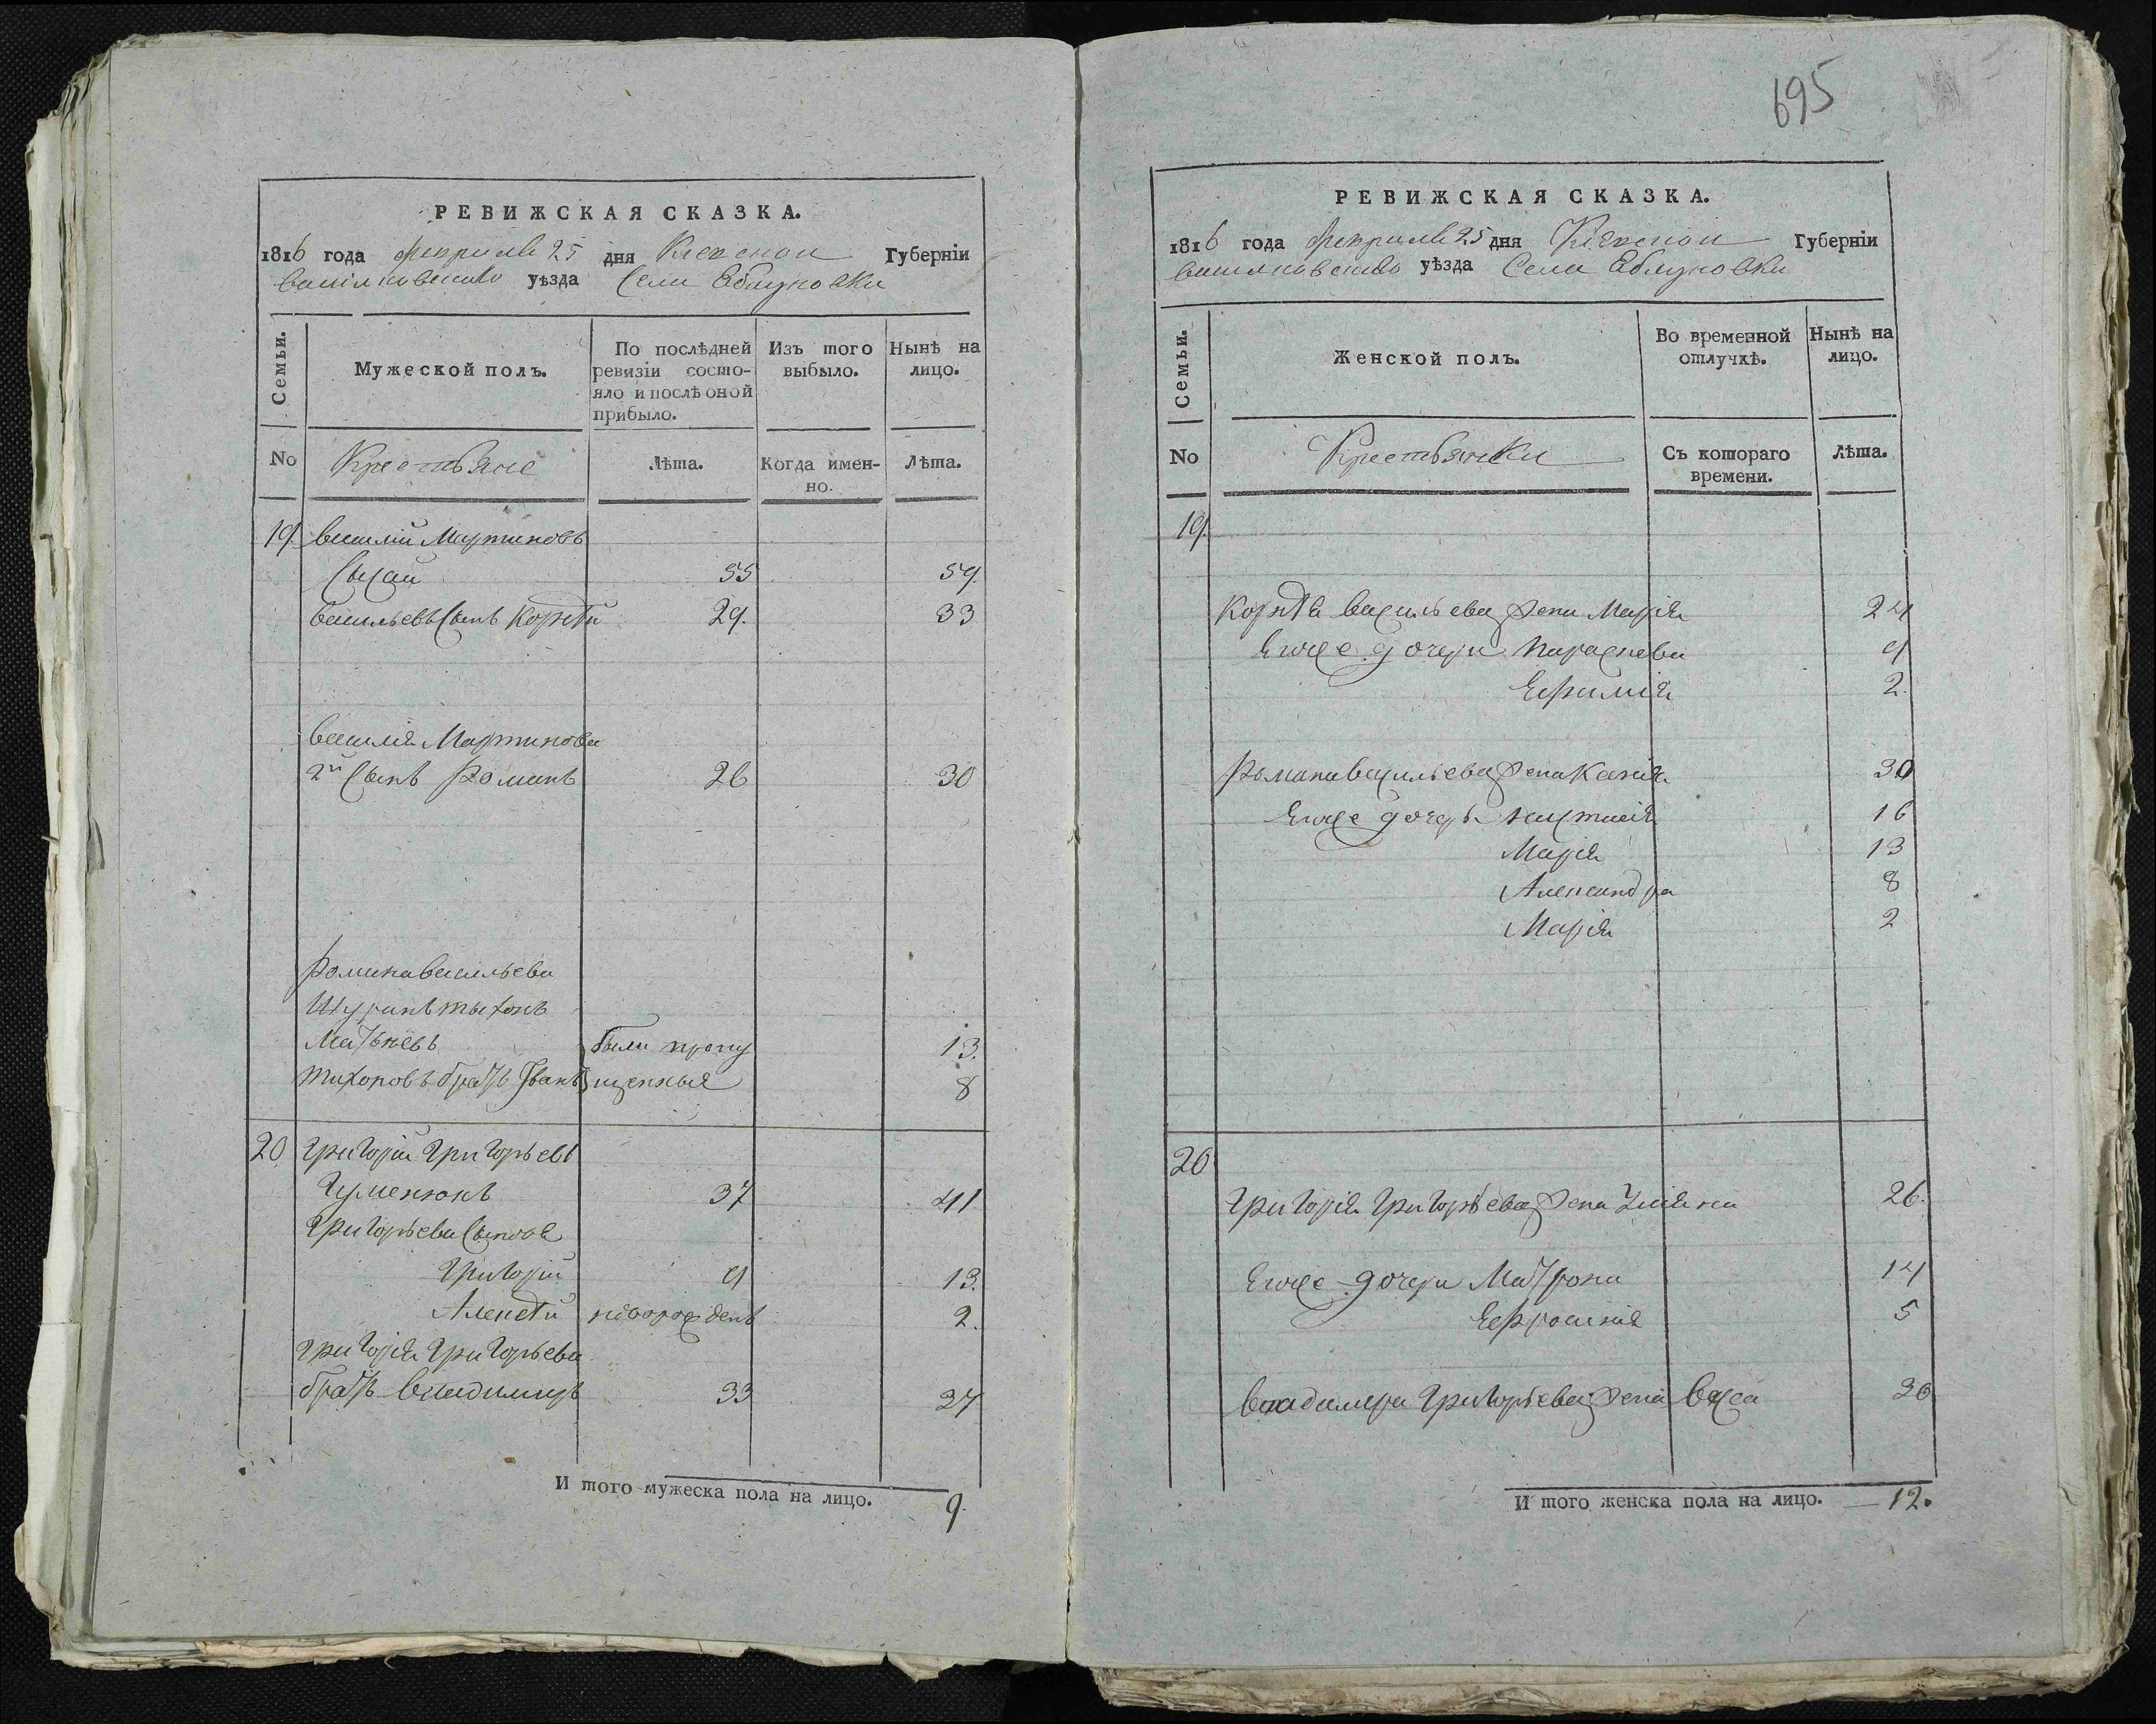 РЕВИЖСКАЯ СКАЗКА.
1816 года Априля 25 дня Киевской Губернїи
Василковскаго уѣзда Села Еблуновки
Семьи.
Мужеской полъ.
По послѣдней ревизїи состо-
яло и послѣ оной прибыло.
Изъ того выбыло.
Нынѣ на лицо.
No Крестьяне Лѣта. Когда имен-
но.
Лѣта.
19. Василий Мартиновъ
55 59.
Васильевъ Сынъ Корнѣй 29. 33
Василия Мартинова
2й Сынъ Романъ 26 30
Романа Васильева
Шуринъ Тихонъ
Матвѣевъ были пропу 13.
Тихоновъ братъ Иванъ щенныя 8
20 Григорий Григорьевъ
Гуменюкъ 37 41
Григорьева Сыновя
Григорий 9 13.
Алексѣй новорожденъ 2.
Григория Григорьева
братъ Владимиръ 33 27
И того мужеска пола на лицо. 9.
695
РЕВИЖСКАЯ СКАЗКА.
1816 года Априля 25 дня Киевской Губернїи
Василковскаго уѣзда Села Еблуновки
Семьи.
Женской полъ.
Во временной отлучкѣ.
Нынѣ на лицо.
No Крестьянки Съ котораго времени. Лѣта.
19.
Корнѣя Васильева жена Мария 24
Егоже дочери Параскева 9
Ефимия 2.
Романа Васильева жена Ксения 30
Егоже дочерь Настасия 16
Мария 13
Александра 8
Мария 2
20
Григория Григорьева жена Улияна 26.
Егоже дочери Матрона 14
Ефросиния 5
Владимера Григорьева жена Васса 30
И того женска пола на лицо. 12.